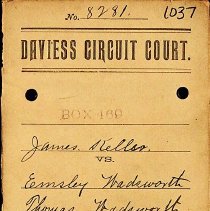 No. 8281. 1037
DAVIESS CIRCUIT COURT.
BOX 469
James Keller
VS.
Emsley Wadsworth
Thomas Wadsworth